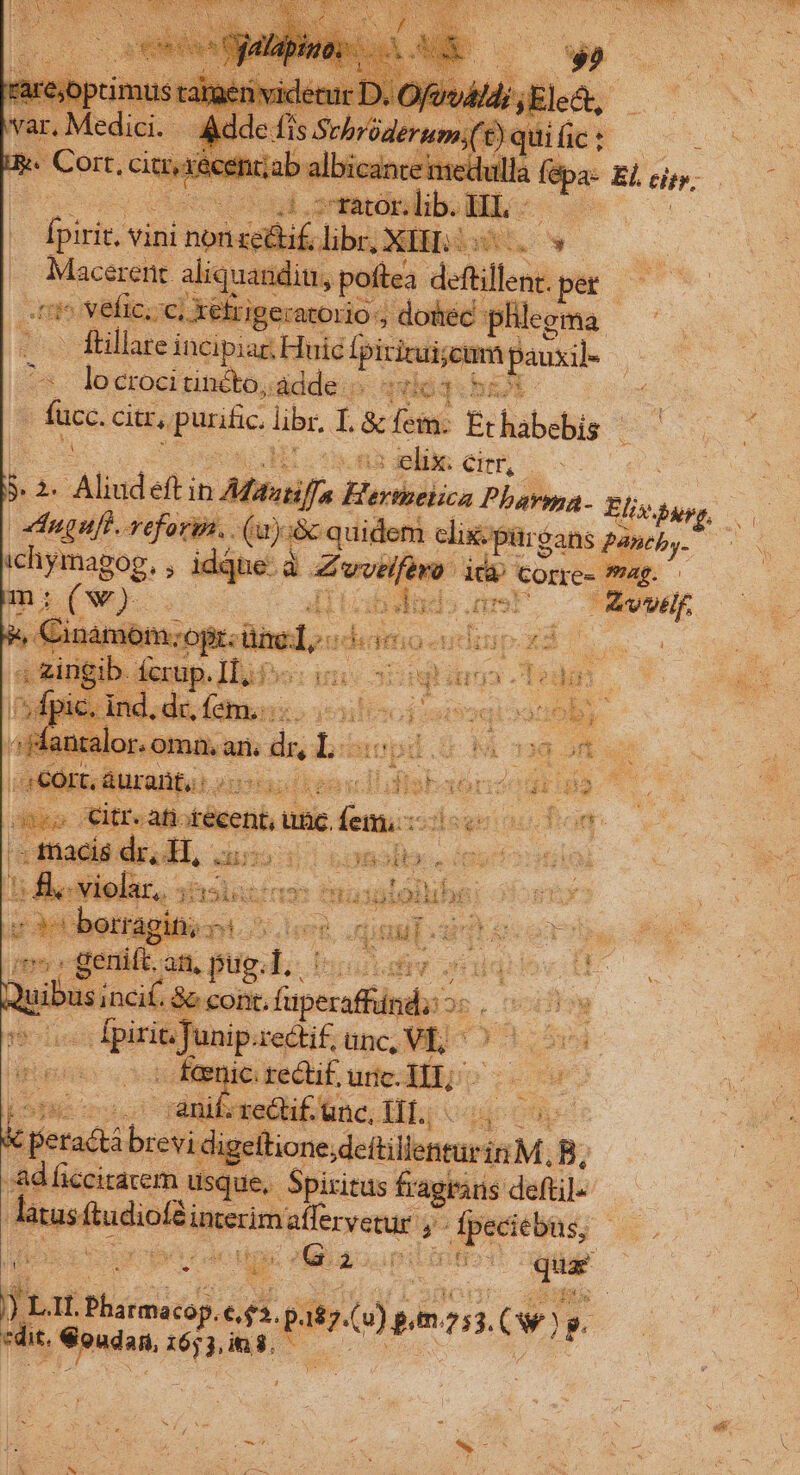 jalapino. 99
rare, optimus tamen videtur D. Osvvaldi, Elect,
var. Medici. Adde sis Schröderum, (t) qui sic :
℞. Cort. citr. recent, ab albicante medulla sepa- El. citr.
rator. lib. III.
spirit. vini non rectif. libr. XIII.
Macerent aliquandiu, postea destillent. per
vesic. c. refrigeratorio, donec phlegma
stillare incipiat. Huic spiritui, cum pauxil-
lo croci tincto, adde
succ. citr. purific. libr. I. & sem. Et habebis
elix. citr.
§. 2. Aliud est in Mantissa Hermetica Pharma- Elix. purg.
August. reform. (u) & quidem elix. purgans panchy-
ichymagog. , idque à Zuvelfero ita corre- mag.
m : (w) Zvvelf.
Cinamom. opt. unc. I,
zingib. scrup. II,
spic. ind. dr. sem.
santalor. omn. an. dr. I.
cort. aurant.
citr. an. recent. unc. sem.
macis dr. II,
fl. violar.
borragin,
genist. an. pug. I.
Quibus incis. & cont. superaffund.
spirit. Junip. rectif. unc. VI.
fœnic. rectif. unc. III,
anis. rectif. unc. III.
& peracta brevi digestione, destillentur in M. B.
ad siccitatem usque. Spiritus fragrans destil-
latus studiosè interim asservetur , speciebus,
G 2 quæ
) L. II. Pharmacop. c. 52. p. 187. (u) p. m. 753. (w) p.
edit. Goudan. 1653, in 8.